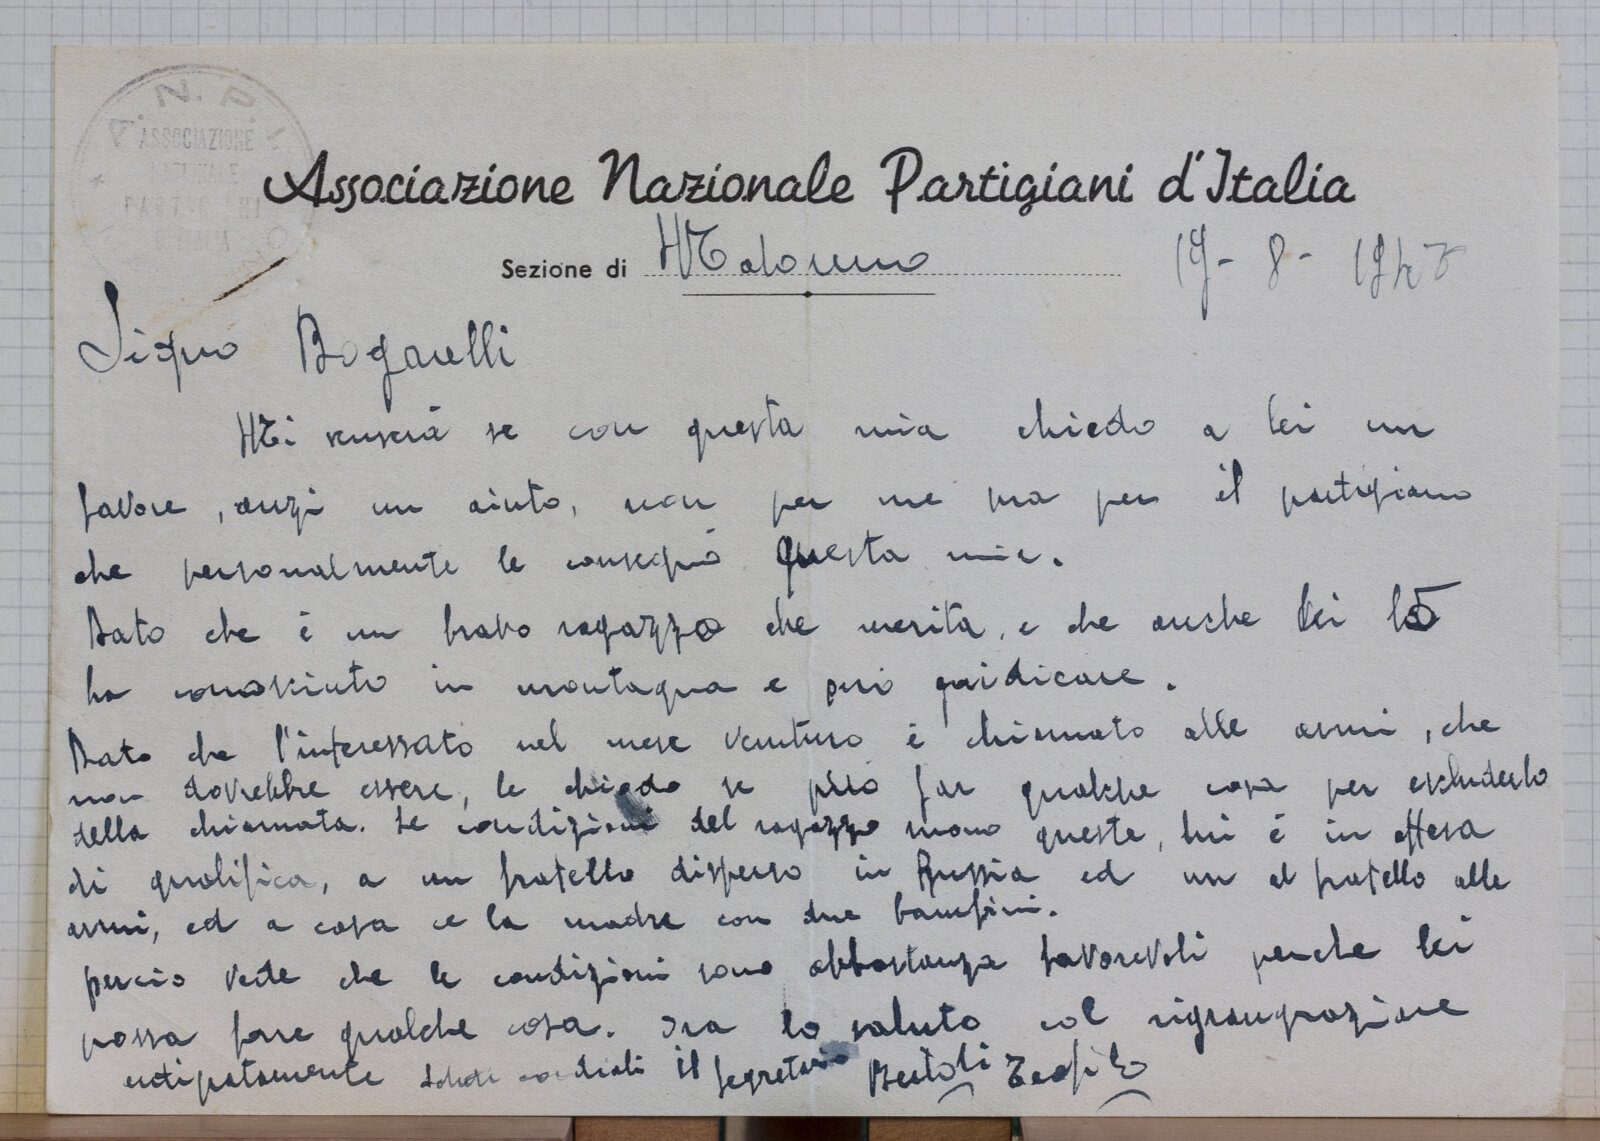 A.N.P.I.
ASSOCIAZIONE
NAZIONALE
PARTIGIANI
D'ITALIA
Associazione Nazionale Partigiani d'Italia
Sezione di Malonno 19-8-1947
Signo Bogarelli
Mi scuserà se con questa mia chiedo a lei un
favore, anzi un aiuto, non per me ma per il partigiano
che personalmente le consegnò questa mia.
Dato che è un bravo ragazzo che merita, e che anche lei lo
ha conosciuto in montagna e può guidicare.
Dato che l'interessato nel mese venturo è chiamato alle armi, che
non dovrebbe essere, le chiedo se può far qualche cosa per escluderlo
della chiamata. Le condizioni del ragazzo sono queste, lui è in attesa
di qualifica, a un fratello disperso in Russia ed un al fratello alle
armi, ed a casa ce la madre con due bambini.
percio vede che le condizioni sono abbastanza favorevoli perche lei
possa fare qualche cosa. Ora lo saluto col ringrangrazione
antipatamente Saluti cordiali il Segretario Bertoli Teofilo